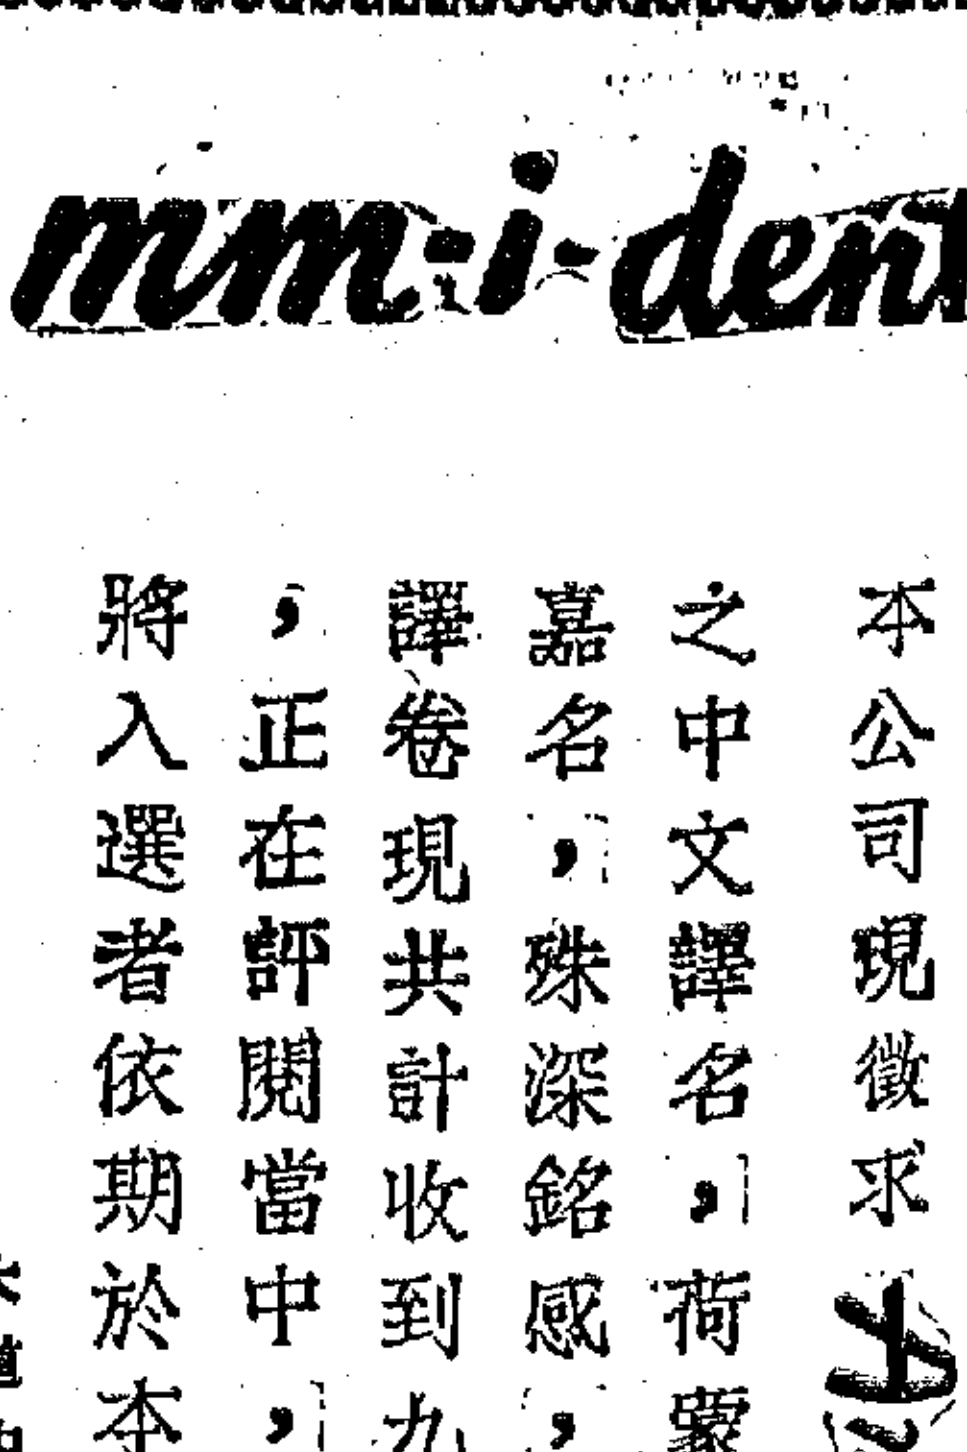 mm-i-dent
本公司現徵求
之中文譯名，荷蒙
嘉名，殊深銘感，
譯卷現共計收到九
，正在評閱當中，
將入選者依期於本